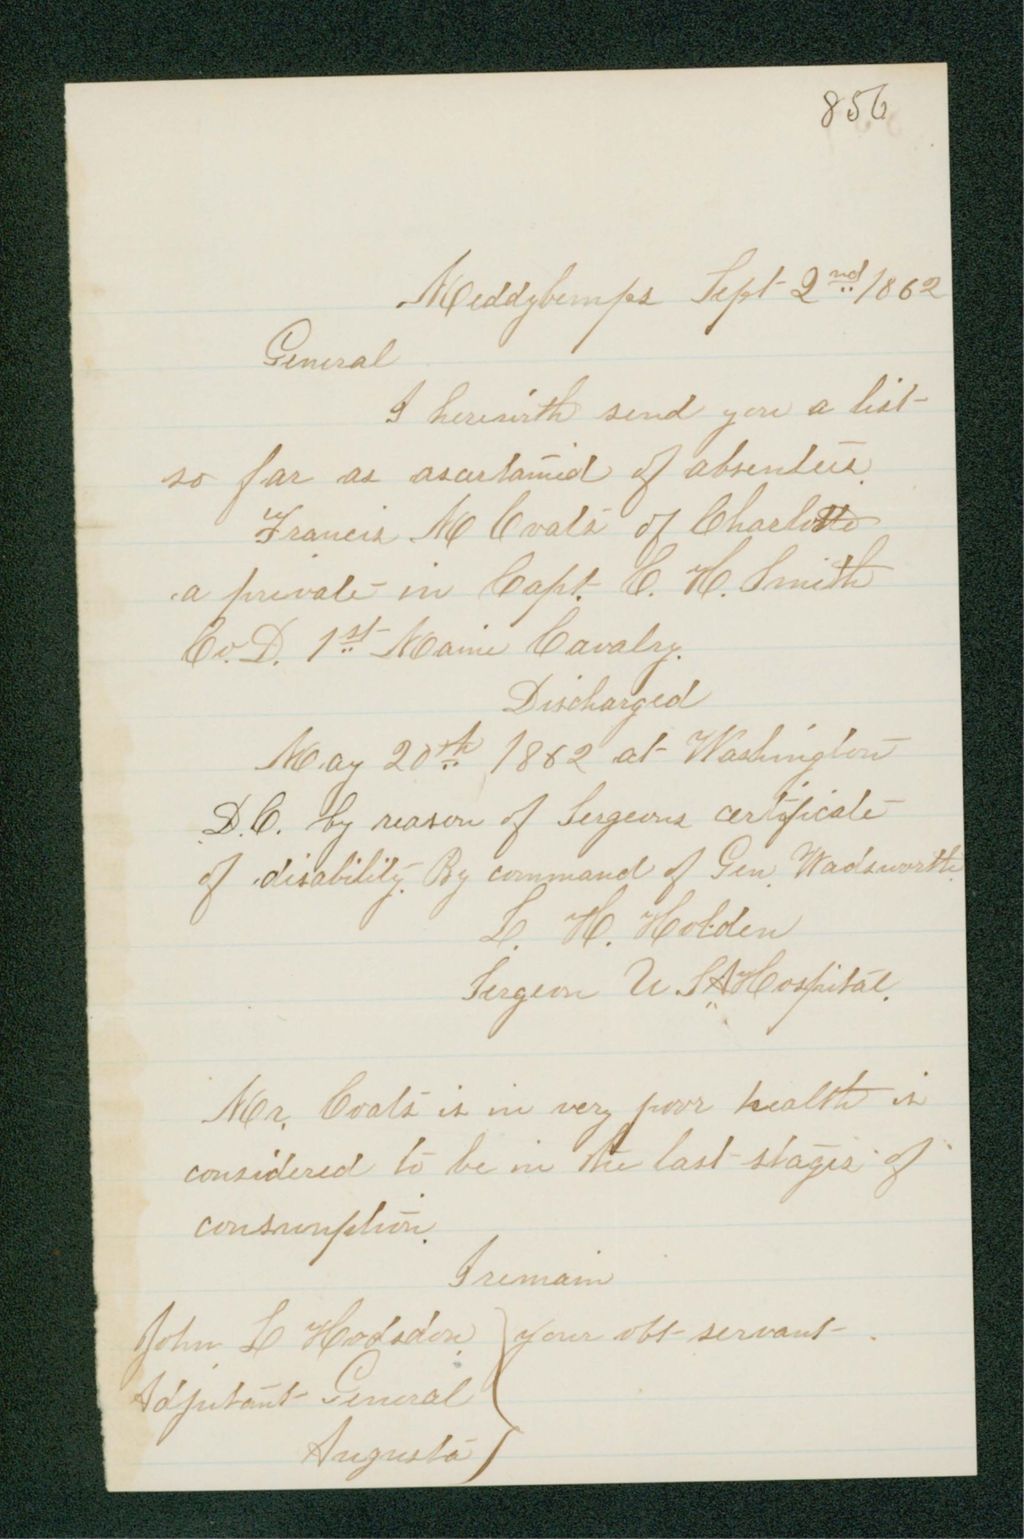 856
Meddybemps Sept 2nd 1862
General
I herewith send you a list
so far as asertained of absentees.
Francis M Coats of Charlotte
a private in Capt. C. H. Smith
Co. D. 1st Maine Cavalry.
Discharged
May 20th 1862 at Washington
D.C. by reason of Sergeons certificate
of disability. By command of Gen. Wadsworth.
L. H. Holden
Sergeon U S A Hospital.
Mr. Coats is in very poor health is
considered to be in the last stages of
consumption.
I remain
John L Hodsdon } your obt servant
Adjutant General
Augusta